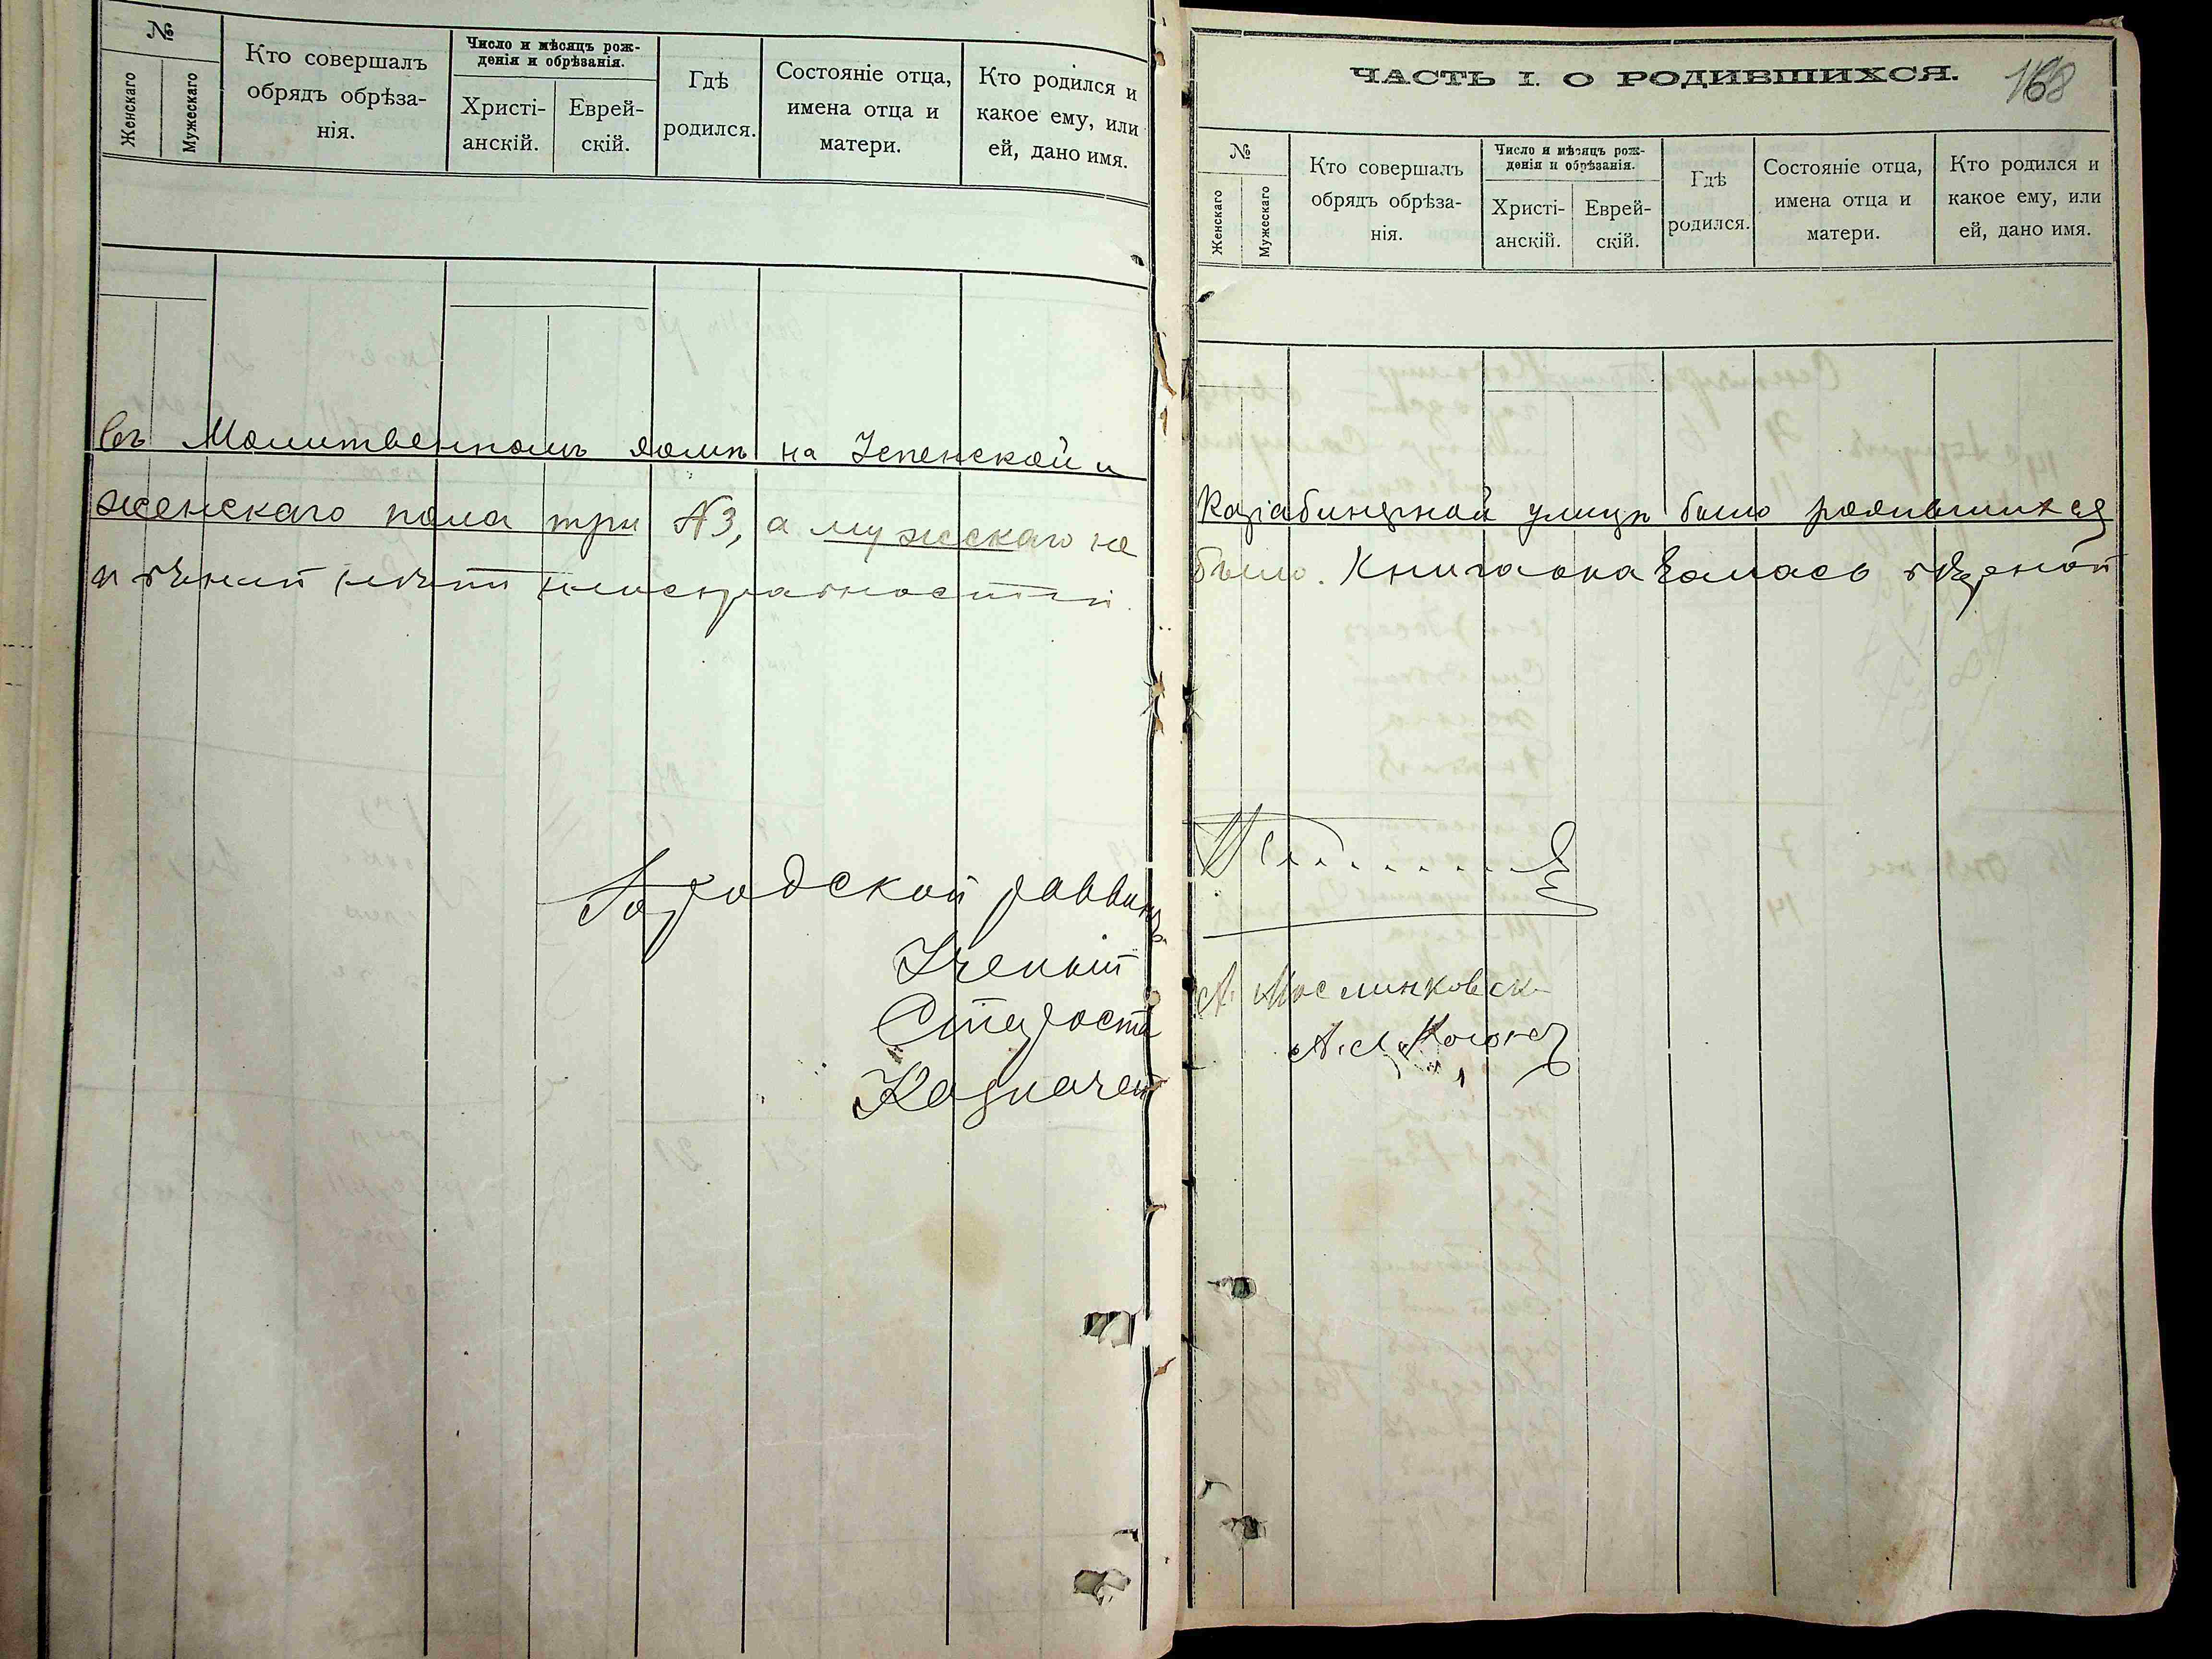 №
Женскаго
Мужескаго
Кто совершалъ
обрядъ обрѣза-
нія.
Число и мѣсяцъ рож-
денія и обрѣзанія.
Христі-
анскій.
Еврей-
скій.
Гдѣ
родился.
Состояніе отца,
имена отца и
матери.
Кто родился и
какое ему, или
ей, дано имя.
Въ Молитвенномъ домѣ на Успенской и
женскаго пола три №3, а мужскаго не
Городской раввинъ
Ученый
Староста
Казначей
ЧАСТЬ I. О РОДИВШИХСЯ.
168
№
Женскаго
Мужескаго
Кто совершалъ
обрядъ обрѣза-
нія.
Число и мѣсяцъ рож-
денія и обрѣзанія.
Христі-
анскій.
Еврей-
скій.
Гдѣ
родился.
Состояніе отца,
имена отца и
матери.
Кто родился и
какое ему, или
ей, дано имя.
улицѣ было родившихся
было. Книга оказалась
А.